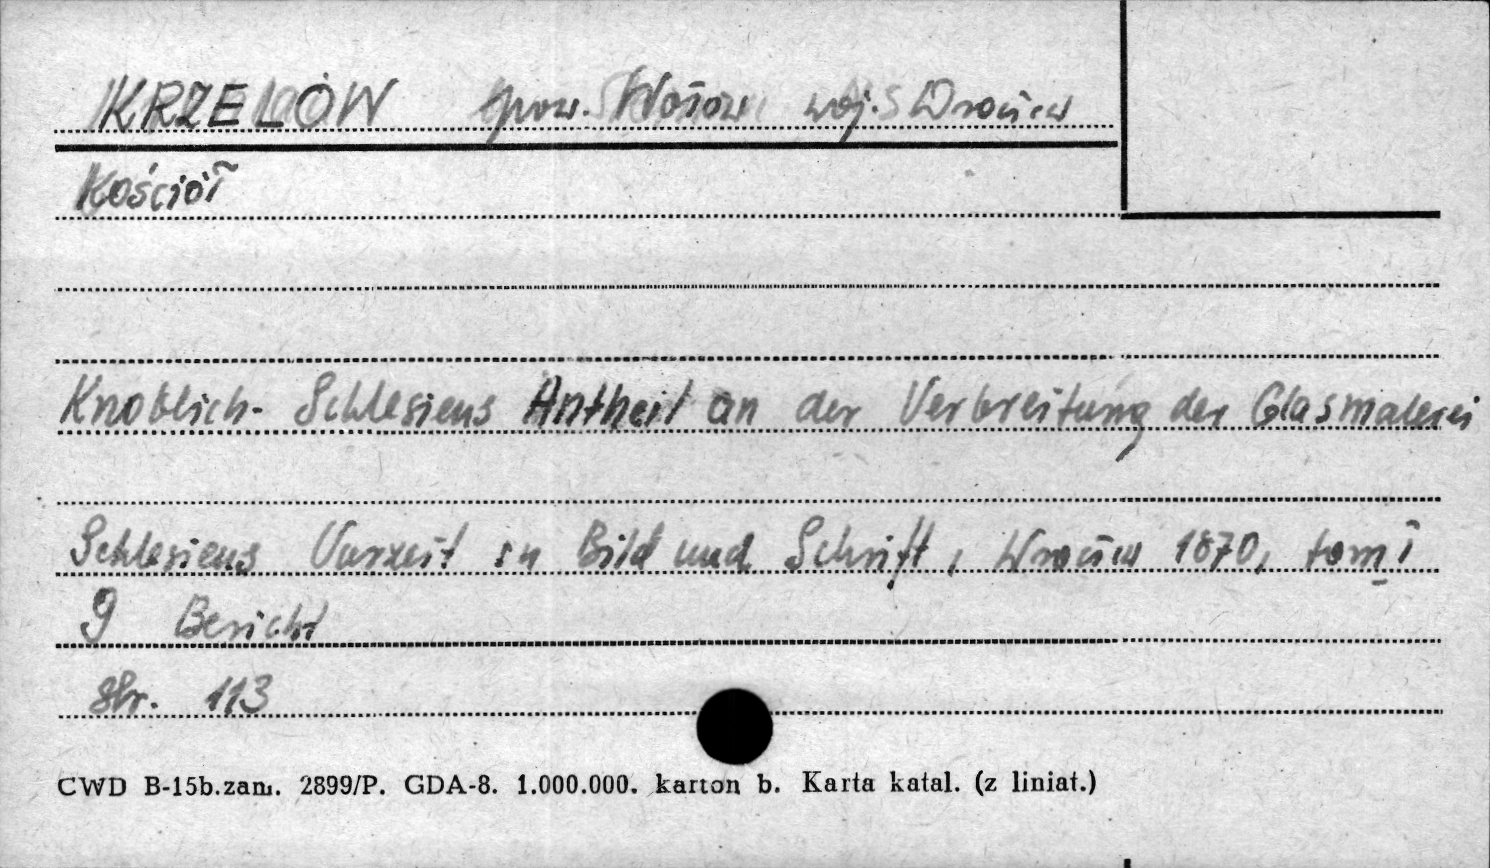 KRZELÓW pow. Wołów woj. Wrocław
Kościół
Knoblich- Schlesiens Antheil an der Verbreitung der Glasmalerei
Schlesiens Vorzeit in Bild und Schrift, Wrocław 1870, tom I
9 Bericht
str. 113
CWD B-15b.zam. 2899/P. GDA-8. 1.000.000. karton b. Karta katal. (z liniat.)